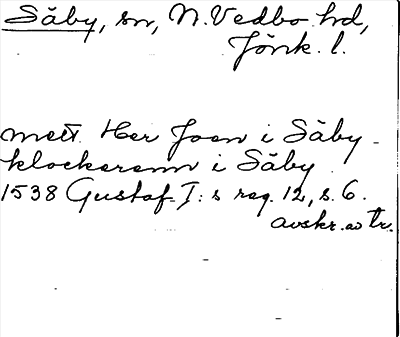 Säby, sn, N. Vedbo hd,
Jönk. l.
mett Her Joen i Säby -
klockerenn i Säby
1538 Gustaf I:s reg. 12, s. 6.
avskr. av tr.